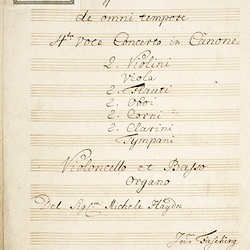 de omni tempore
4tr. Voce Concerto in Canone
2. Violini
Viola
2. Flauti
2. Oboi
2. Corni
2. Clarini
Tympani
Violoncello et Basso
Organo
Del Sigre. Michele Haydn